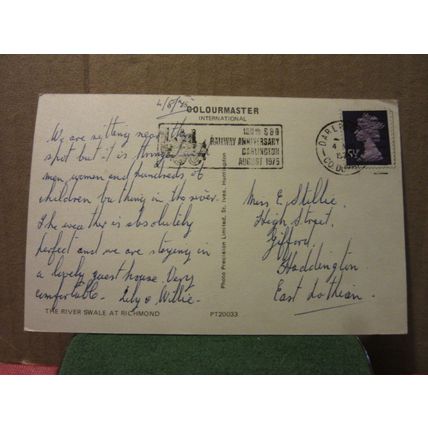 4/8/75
COLOURMASTER
INTERNATIONAL
150TH S&D
RAILWAY ANNIVERSARY
DARLINGTON
AUGUST 1975
DARL
CO. DUR
We are sitting near the
spot but it is through
men women and hundreds of
children bathing in the river.
The weather is absolutely
perfect and we are staying in
a lovely guest house. Very
comfortable. Lily & Willie.
Photo Precision Limited, St. Ives, Huntingdon
Miss E,
High Street,
Gifford,
Haddington
East Lothian.
THE RIVER SWALE AT RICHMOND
PT20033